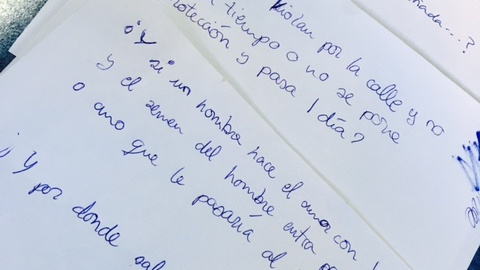 nada...?
violan por la calle y no
tiempo o no se pone
otección y pasa 1 día?
¿Y si un hombre hace el amor con
y el semen del hombre entra por
o ano que le pasaría al
¿Y por donde sal